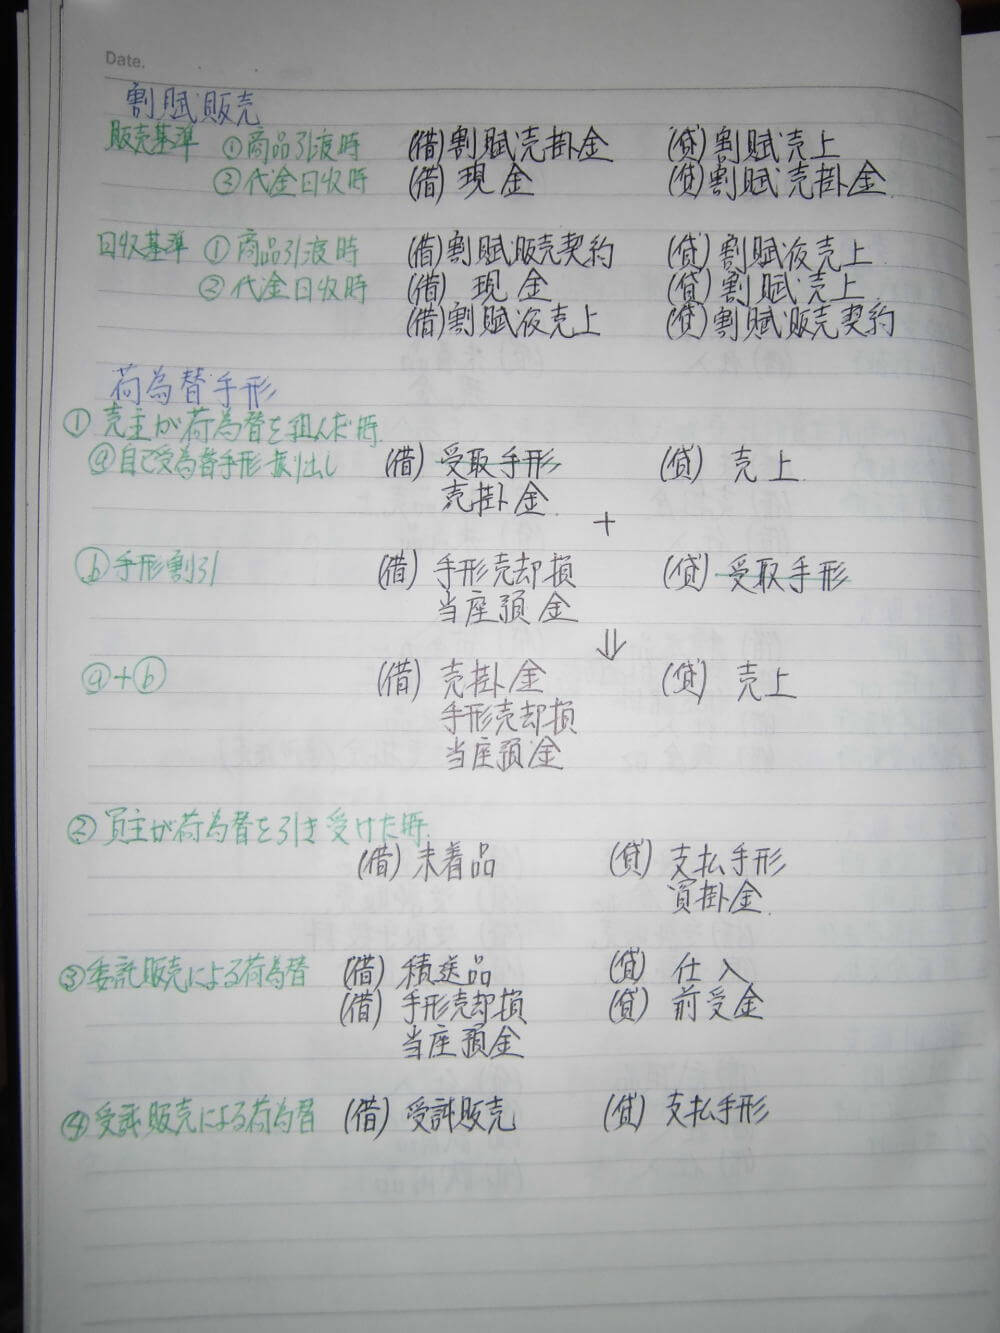 Date.
割賦販売
販売基準 ①商品引渡時 (借)割賦売掛金 (貸)割賦売上
②代金回収時 (借) 現金 (貸)割賦売掛金
回収基準 ①商品引渡時 (借)割賦販売契約 (貸) 割賦仮売上
② 代金回収時 (借) 現金 (貸) 割賦売上
(借)割賦仮売上 (貸)割賦販売契約
荷為替手形
① 売主が荷為替を組んだ時
ⓐ自己受為替手形振り出し (借) 受取手形 (貸) 売上
売掛金
+
ⓑ手形割引 (借) 手形売却損 (貸) 受取手形
当座預金
⇓
ⓐ+ⓑ (借) 売掛金 (貸) 売上
手形売却損
当座預金
② 買主が荷為替を引き受けた時
(借) 未着品 (貸) 支払手形
買掛金
③委託販売による荷為替 (借) 積送品 (貸) 仕入
(借) 手形売却損 (貸) 前受金
当座預金
④受託販売による荷為替 (借) 受託販売 (貸) 支払手形